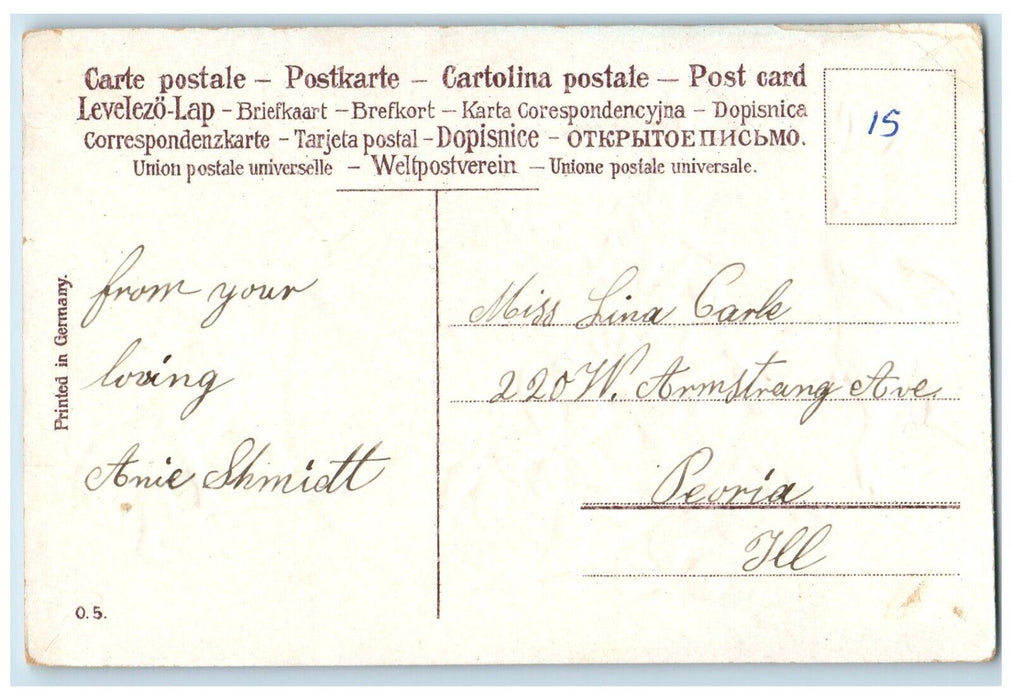 Carte postale – Postkarte – Cartolina postale – Post card
Levelező-Lap – Briefkaart – Brefkort – Karta Corespondencyjna – Dopisnica
Correspondenzkarte – Tarjeta postal – Dopisnice – ОТКРЫТОЕПИСЬМО.
Union postale universelle – Weltpostverein – Unione postale universale.
15
Printed in Germany.
from your
loving
Anie Shmidt
O.5.
Miss Lina Carle
220 W. Armstrang Ave.
Peoria
Ill